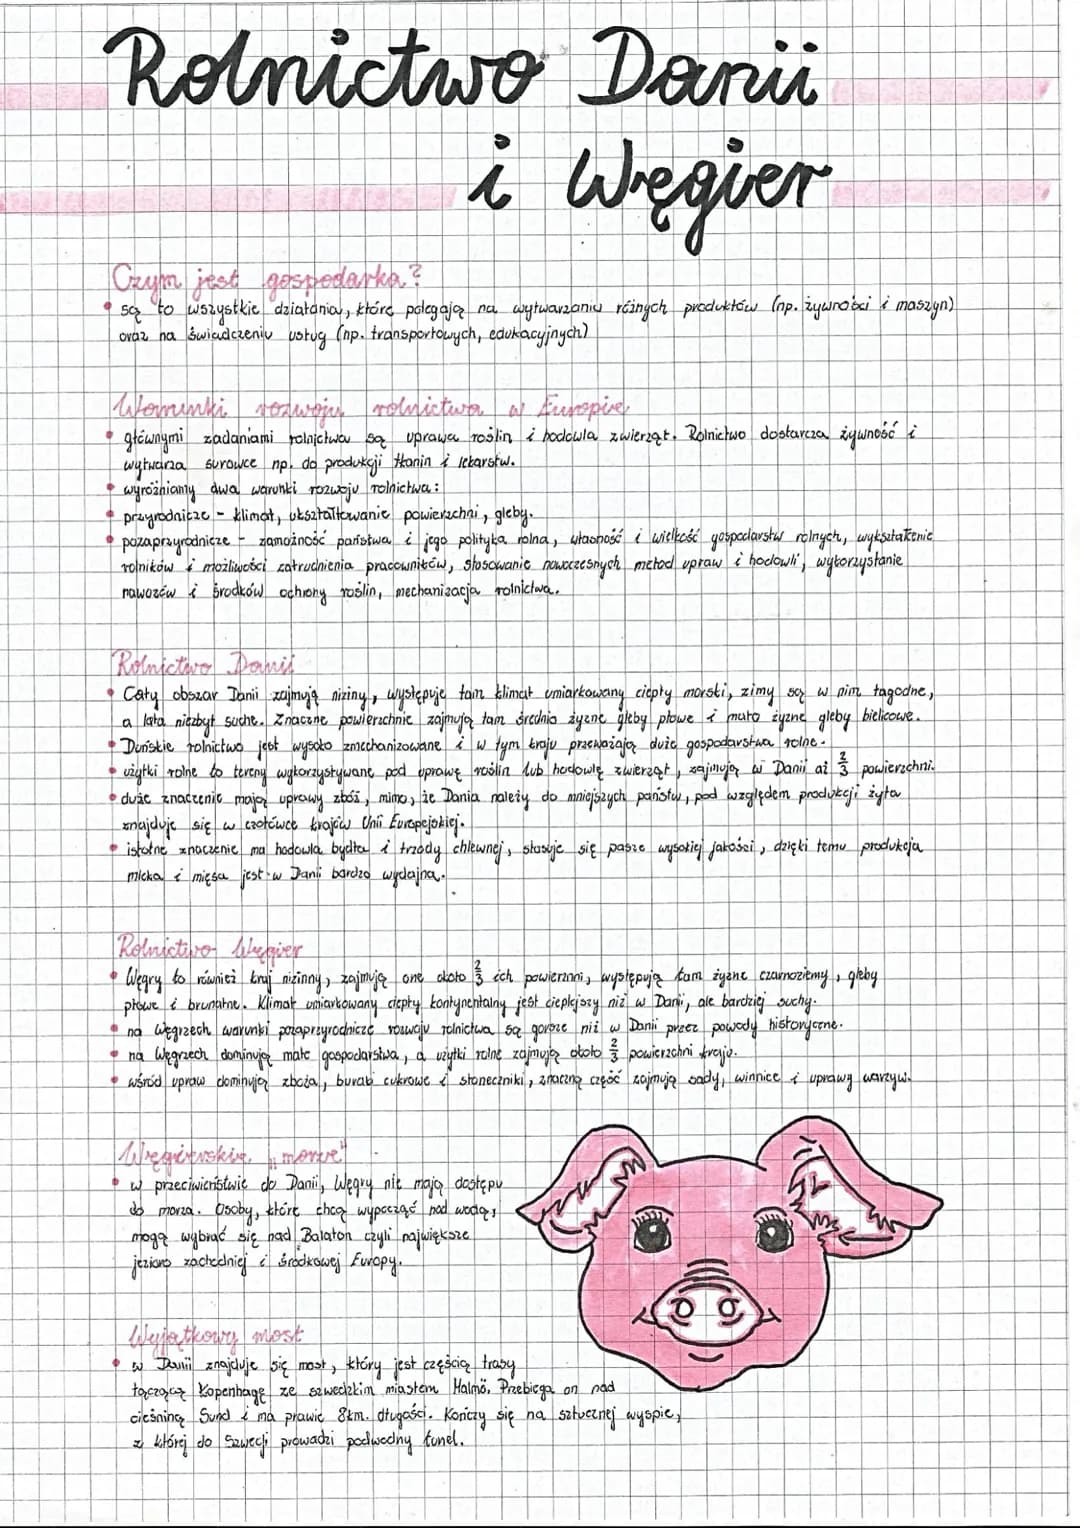 Rolnictwo Danii
i Węgier
Czym jest gospodarka?
• są to wszystkie działania, które polegają na wytwarzaniu różnych produktów (np. żywności i maszyn)
oraz na świadczeniu usług (np. transportowych, edukacyjnych)
Warunki rozwoju rolnictwa w Europie
• głównymi zadaniami rolnictwa są uprawa roślin i hodowla zwierząt. Rolnictwo dostarcza żywność i
wytwarza surowce np. do produkcji tkanin i lekarstw.
• wyróżniamy dwa warunki rozwoju rolnictwa:
• przyrodnicze - klimat, ukształtowanie powierzchni, gleby.
• pozaprzyrodnicze - zamożność państwa i jego polityka rolna, własność i wielkość gospodarstw rolnych, wykształcenie
rolników i możliwości zatrudnienia pracowników, stosowanie nowoczesnych metod upraw i hodowli, wykorzystanie
nawozów i środków ochrony roślin, mechanizacja rolnictwa.
Rolnictwo Danii
• Cały obszar Danii zajmują niziny, występuje tam klimat umiarkowany ciepły morski, zimy są w nim łagodne,
a lata niezbyt suche. Znaczne powierzchnie zajmują tam średnio żyzne gleby płowe i mało żyzne gleby bielicowe.
• Duńskie rolnictwo jest wysoko zmechanizowane i w tym kraju przeważają duże gospodarstwa rolne.
• użytki rolne to tereny wykorzystywane pod uprawę roślin lub hodowlę zwierząt, zajmują w Danii aż 2/3 powierzchni.
• duże znaczenie mają uprawy zbóż, mimo, że Dania należy do mniejszych państw, pod względem produkcji żyta
znajduje się w czołówce krajów Unii Europejskiej.
• istotne znaczenie ma hodowla bydła i trzody chlewnej, stosuje się pasze wysokiej jakości, dzięki temu produkcja
mleka i mięsa jest w Danii bardzo wydajna.
Rolnictwo Węgier
• Węgry to również kraj nizinny, zajmują one około 2/3 ich powierzni, występują tam żyzne czarnoziemy, gleby
płowe i brunatne. Klimat umiarkowany ciepły kontynentalny jest cieplejszy niż w Danii, ale bardziej suchy.
• na Węgrzech warunki pozaprzyrodnicze rozwoju rolnictwa są gorsze niż w Danii przez powody historyczne.
• na Węgrzech dominują małe gospodarstwa, a użytki rolne zajmują około 2/3 powierzchni kraju.
• wśród upraw dominują zboża, buraki cukrowe i słoneczniki, znaczną część zajmują sady, winnice i uprawy warzyw.
Węgierskie „morze"
• w przeciwieństwie do Danii, Węgry nie mają dostępu
do morza. Osoby, które chcą wypocząć nad wodą,
mogą wybrać się nad Balaton czyli największe
jezioro zachodniej i środkowej Europy.
Wyjątkowy most
• w Danii znajduje się most, który jest częścią trasy
łączącą Kopenhagę ze szwedzkim miastem Malmö. Przebiega on nad
cieśniną Sund i ma prawie 8km. długości. Kończy się na sztucznej wyspie,
z której do Szwecji prowadzi podwodny tunel.